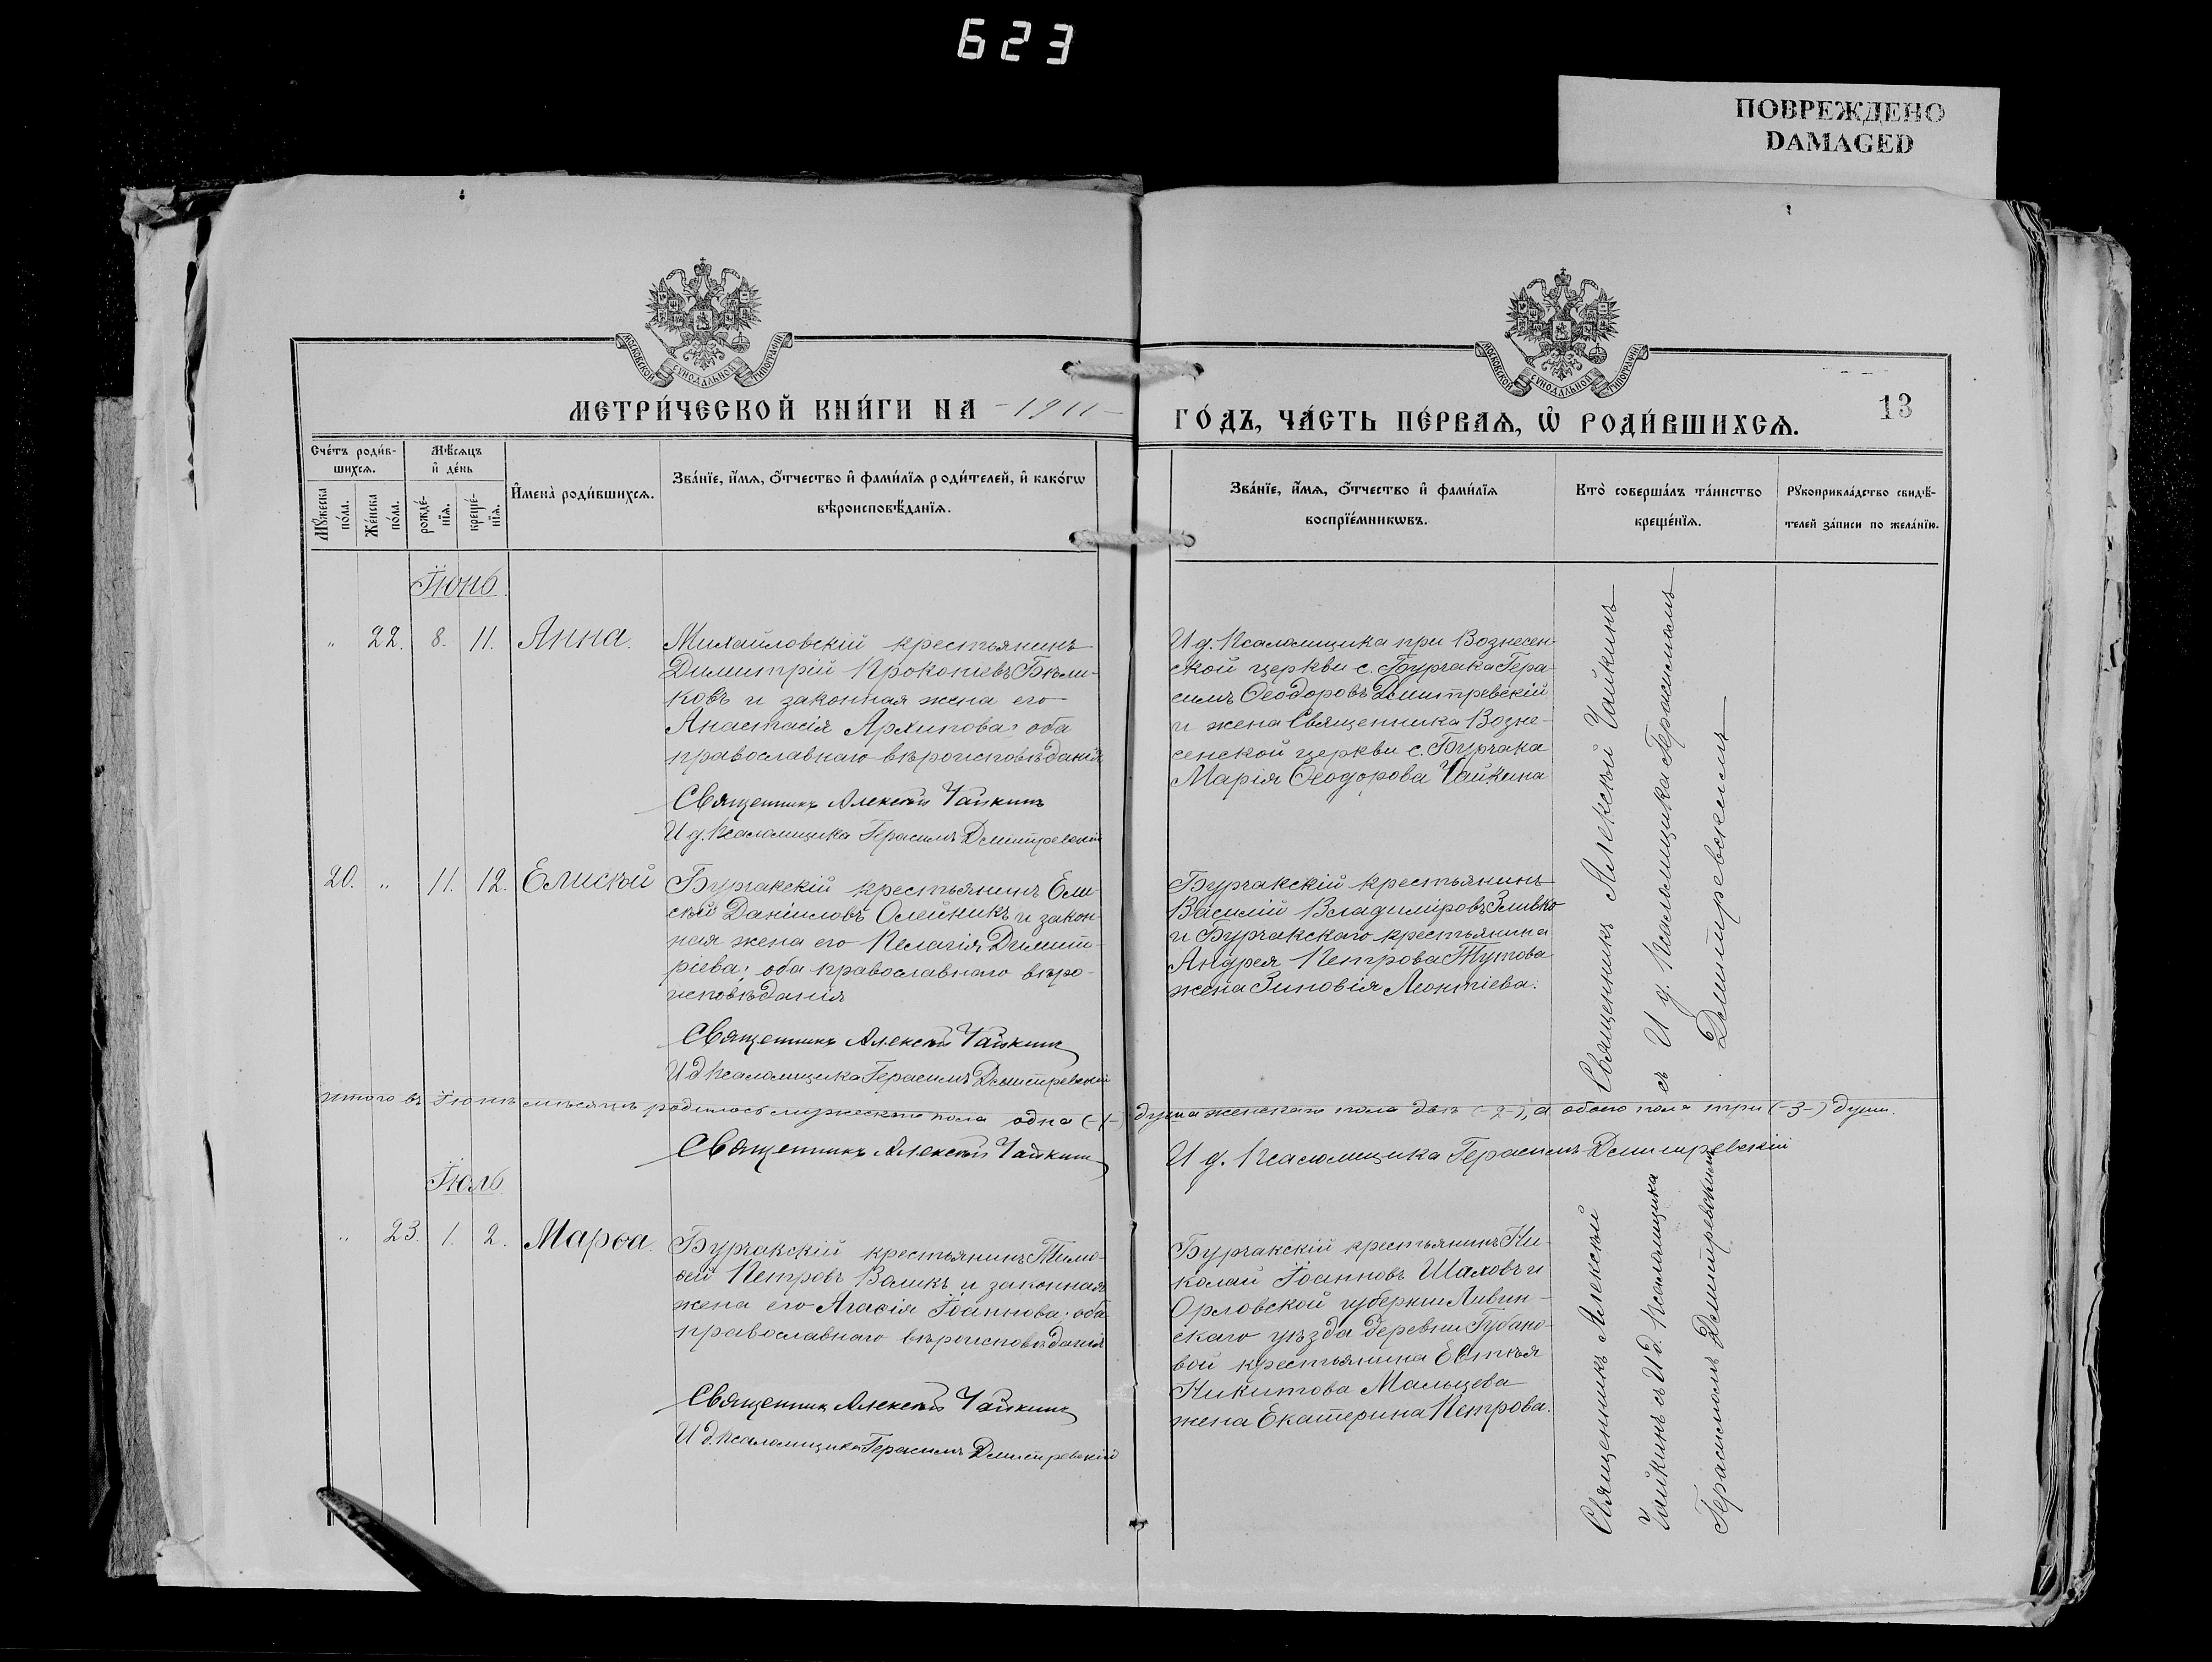 623
ПОВРЕЖДЕНО
DAMAGED
МОСКОВСКОЙ СѴНОДАЛЬНОЙ ТИПОГРАФІИ
МОСКОВСКОЙ СѴНОДАЛЬНОЙ ТИПОГРАФІИ
МЕТРИ́ЧЕСКОЙ КНИ́ГИ НА -1911-
ГО́ДЪ, ЧА́СТЬ ПЕ́РВАѦ, Ѡ҆ РОДИ́ВШИХСѦ.
13
Сче́тъ роди́в-
шихсѧ.
Мѣ́сѧцъ
и҆ де́нь
Мꙋ́жеска
по́ла.
Же́нска
по́ла.
рожде́-
нїѧ.
креще́-
нїѧ.
И҆мена̀ роди́вшихсѧ.
Зва́нїе, и҆́мѧ, ѻ҆́тчество и҆ фами́лїѧ роди́телей, и҆ како́гѡ
вѣроисповѣ́данїѧ.
Зва́нїе, и҆́мѧ, ѻ҆́тчество и҆ фами́лїѧ
воспрїе́мникѡвъ.
Кто̀ соверша́лъ та́инство
креще́нїѧ.
Рꙋкоприкла́дство свидѣ́-
телей за́писи по жела́нїю.
Іюнь
" 22. 8. 11. Анна.
Михайловскій крестьянинъ
Димитрій Прокопіевъ Бѣли-
ковъ и законная жена его
Анастасія Архипова; оба
православнаго вѣроисповѣданія
Священникъ Алексѣй Чайкинъ
И д. Псаломщика Герасимъ Дмитревскій
И д. Псаломщика при Вознесен-
ской церкви с. Бурчака Гера-
симъ Ѳеодоровъ Дмитревскій
и жена Священника Возне-
сенской церкви с. Бурчака
Марія Ѳеодорова Чайкина
Священникъ Алексѣй Чайкинъ
съ И д. Псаломщика Герасимомъ
Дмитревскимъ
20. " 11. 12. Елисѣй
Бурчакскій крестьянинъ Ели-
сѣй Даніиловъ Олейникъ и закон-
ная жена его Пелагія Димит-
ріева; оба православнаго вѣро-
исповѣданія
Священникъ Алексѣй Чайкинъ
И д Псаломщика Герасимъ Дмитревскій
Бурчакскій крестьянинъ
Василій Владиміровъ Зливко
и Бурчакскаго крестьянина
Андрея Петрова Тутова
жена Зиновія Леонтіева.
Итого въ Іюнѣ мѣсяцѣ родилось мужескаго пола одна (-1-) душа женскаго пола двѣ (-2-), а обоего пола три (-3-) души.
Священникъ Алексѣй Чайкинъ
И д. Псаломщика Герасимъ Дмитревскій
Іюль
" 23. 1. 2. Марѳа.
Бурчакскій крестьянинъ Тимо-
ѳей Петровъ Воликъ и законная
жена его Агаѳія Іоаннова; оба
православнаго вѣроисповѣданія
Священникъ Алексѣй Чайкинъ
И д. Псаломщика Герасимъ Дмитревскій
Бурчакскій крестьянинъ Ни-
колай Іоанновъ Шаховъ и
Орловской губерніи Ливен-
скаго уѣзда деревни Губано-
вой крестьянина Евтѣя
Никитова Мальцева
жена Екатерина Петрова.
Священникъ Алексѣй
Чайкинъ съ И д. Псаломщика
Герасимомъ Дмитревскимъ